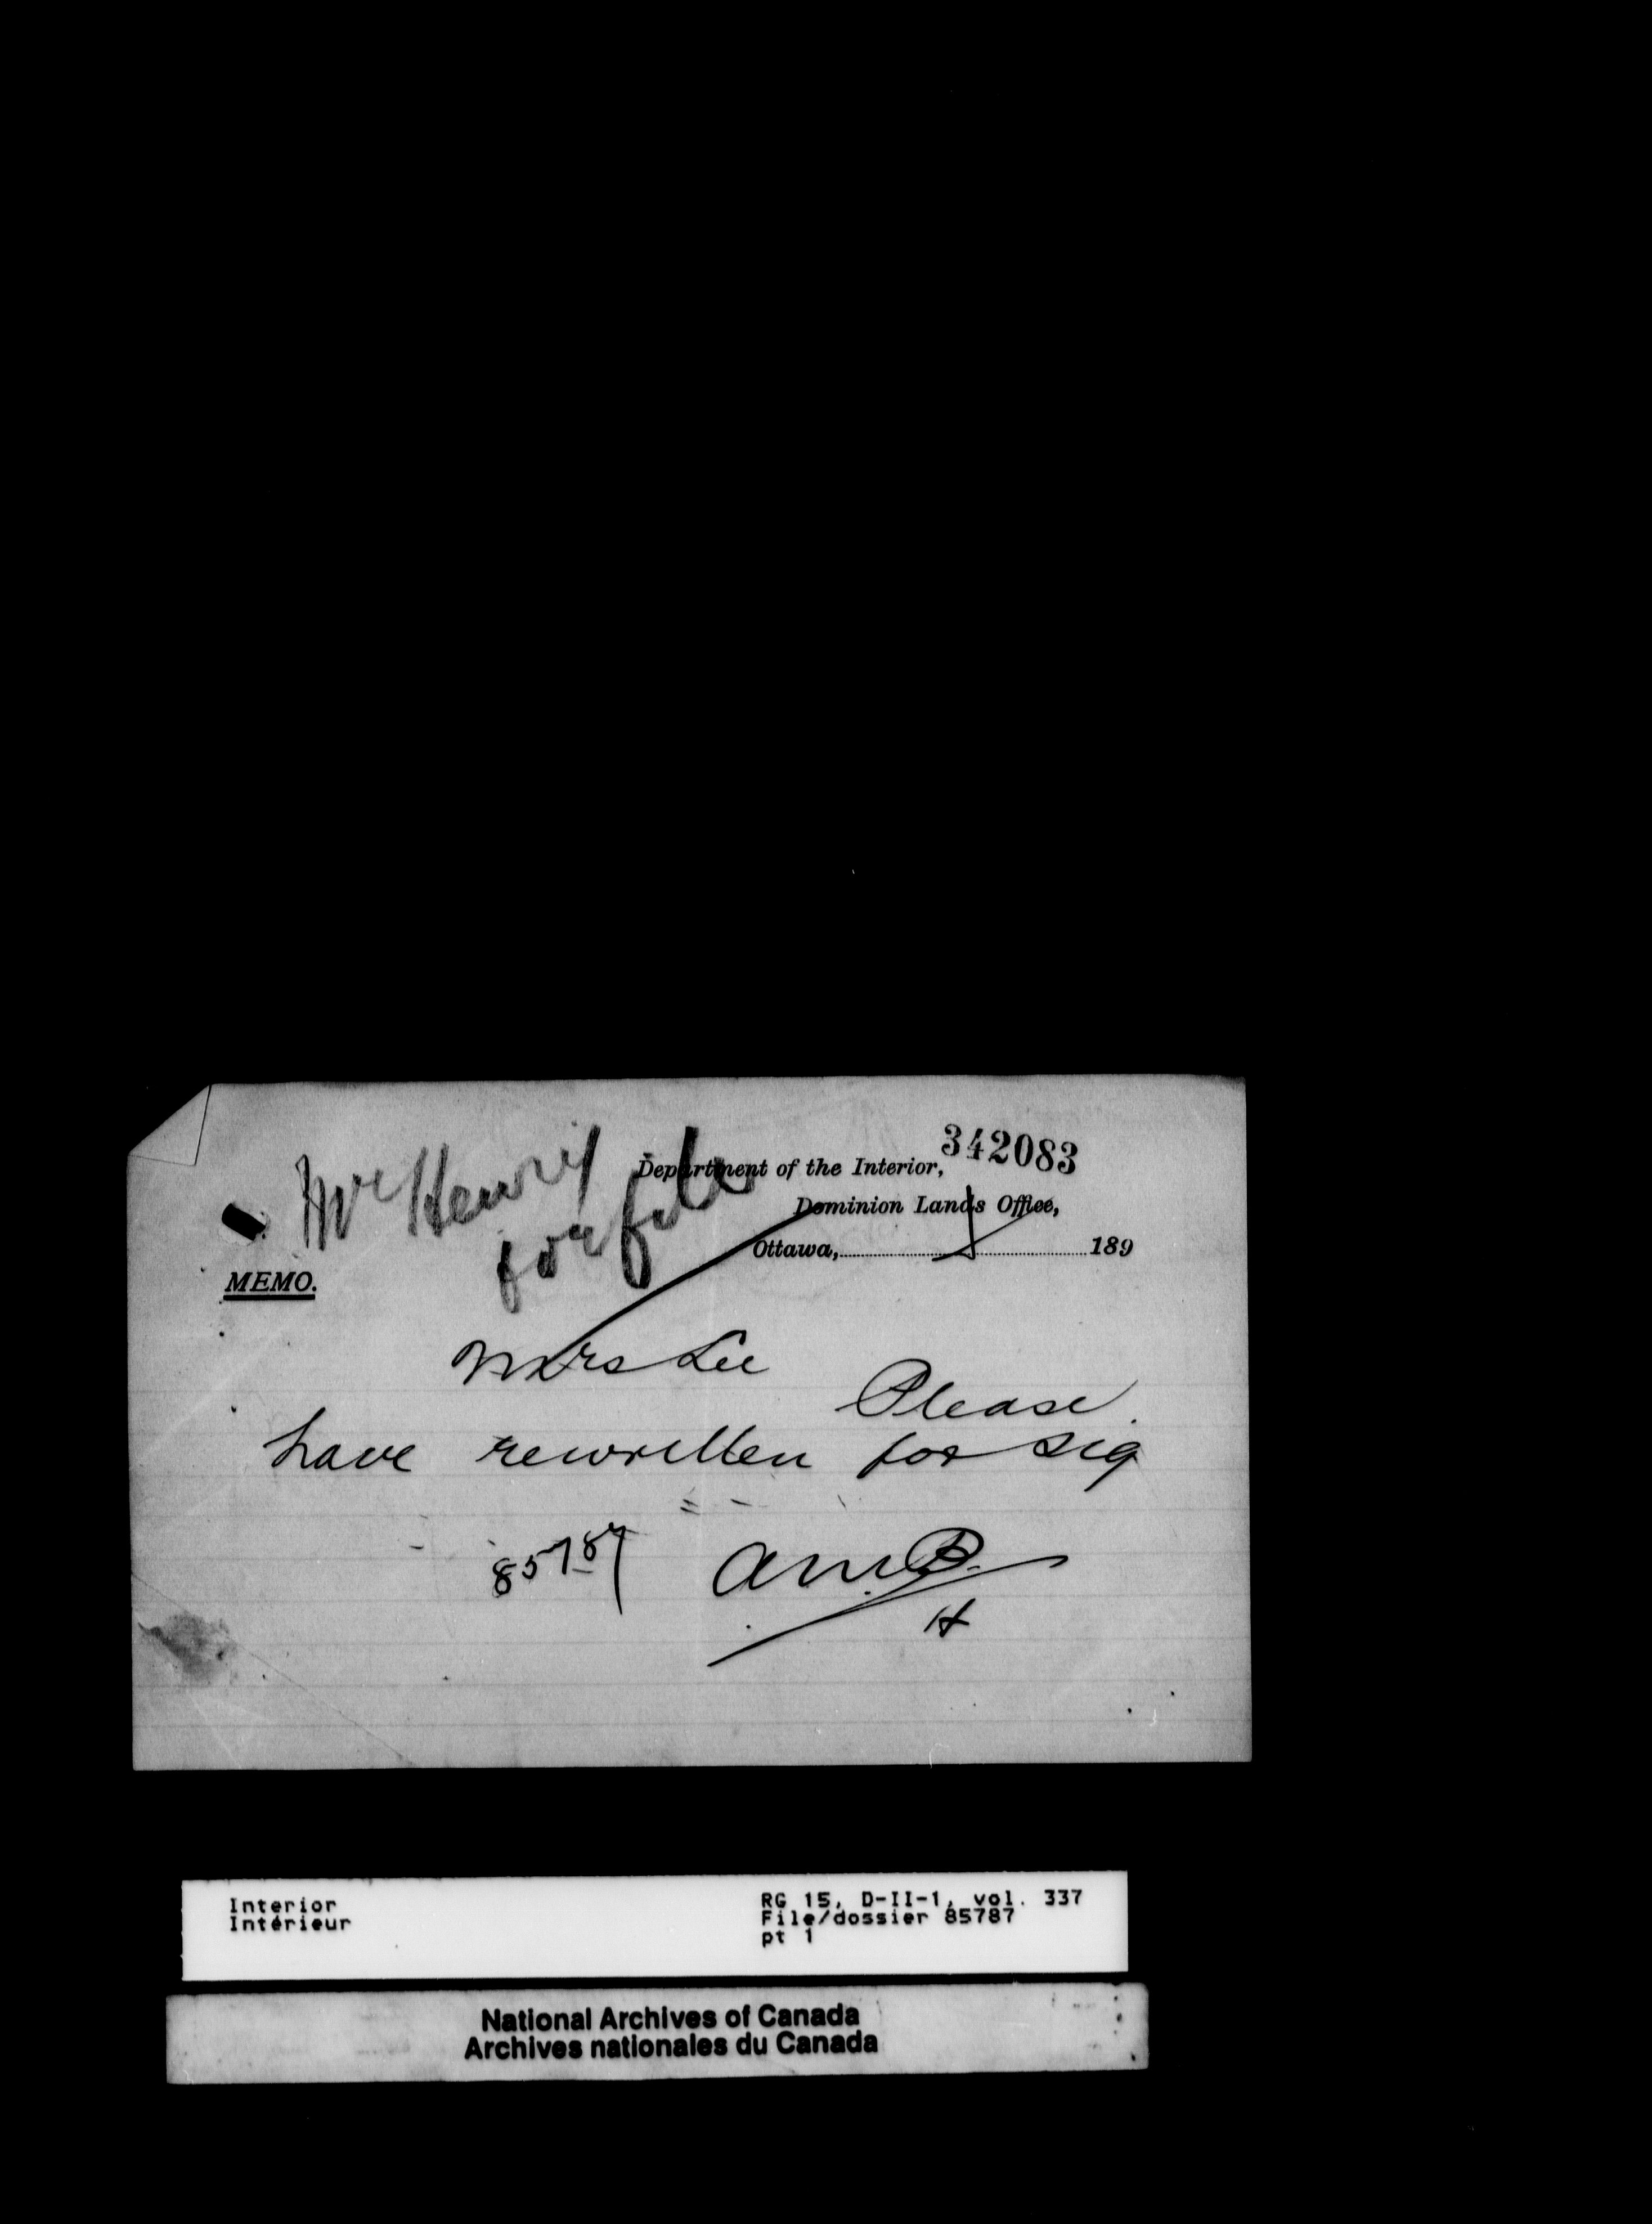 342083
Department of the Interior,
Dominion Lands Office,
Ottawa, 189
Mr Henry
for file
MEMO.
Mrs Lee
Please
have rewritten for sig
85787 AMB.
H
Interior
Intérieur
RG 15, D-II-1, vol. 337
File/dossier 85787
pt 1
National Archives of Canada
Archives nationales du Canada